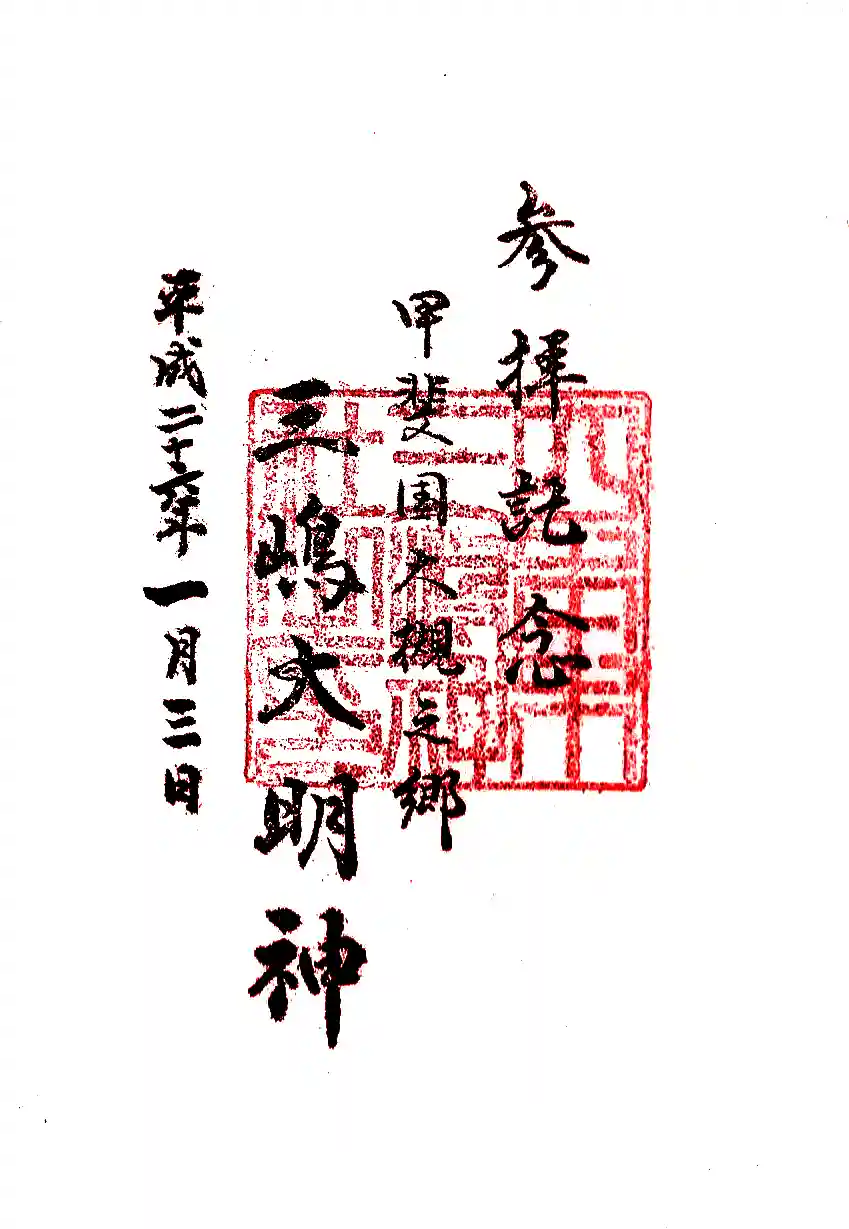 参拝記念
甲斐国大槻之郷
三嶋大明神
平成二十六年一月三日